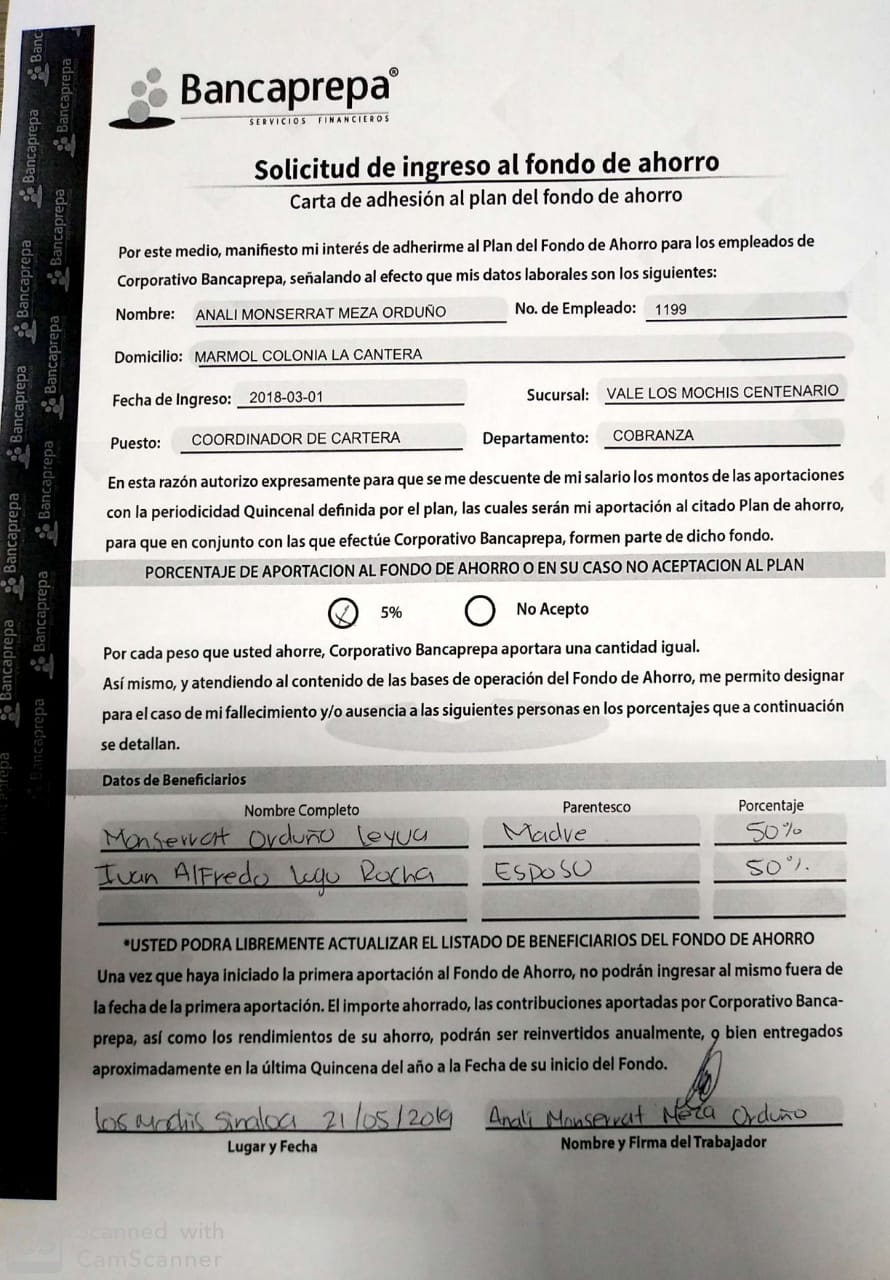 Bancaprepa®
SERVICIOS FINANCIEROS
Solicitud de ingreso al fondo de ahorro
Carta de adhesión al plan del fondo de ahorro
Por este medio, manifiesto mi interés de adherirme al Plan del Fondo de Ahorro para los empleados de
Corporativo Bancaprepa, señalando al efecto que mis datos laborales son los siguientes:
Nombre: ANALI MONSERRAT MEZA ORDUÑO No. de Empleado: 1199
Domicilio: MARMOL COLONIA LA CANTERA
Fecha de Ingreso: 2018-03-01 Sucursal: VALE LOS MOCHIS CENTENARIO
Puesto: COORDINADOR DE CARTERA Departamento: COBRANZA
En esta razón autorizo expresamente para que se me descuente de mi salario los montos de las aportaciones
con la periodicidad Quincenal definida por el plan, las cuales serán mi aportación al citado Plan de ahorro,
para que en conjunto con las que efectúe Corporativo Bancaprepa, formen parte de dicho fondo.
PORCENTAJE DE APORTACION AL FONDO DE AHORRO O EN SU CASO NO ACEPTACION AL PLAN
5% No Acepto
Por cada peso que usted ahorre, Corporativo Bancaprepa aportara una cantidad igual.
Así mismo, y atendiendo al contenido de las bases de operación del Fondo de Ahorro, me permito designar
para el caso de mi fallecimiento y/o ausencia a las siguientes personas en los porcentajes que a continuación
se detallan.
Datos de Beneficiarios
Nombre Completo Parentesco Porcentaje
Monserrat Orduño Leyva Madre 50%
Ivan Alfredo Lugo Rocha Esposo 50%
*USTED PODRA LIBREMENTE ACTUALIZAR EL LISTADO DE BENEFICIARIOS DEL FONDO DE AHORRO
Una vez que haya iniciado la primera aportación al Fondo de Ahorro, no podrán ingresar al mismo fuera de
la fecha de la primera aportación. El importe ahorrado, las contribuciones aportadas por Corporativo Banca-
prepa, así como los rendimientos de su ahorro, podrán ser reinvertidos anualmente, o bien entregados
aproximadamente en la última Quincena del año a la Fecha de su inicio del Fondo.
Los Mochis Sinaloa 21/05/2019 Anali Monserrat Meza Orduño
Lugar y Fecha Nombre y Firma del Trabajador
Scanned with
CamScanner